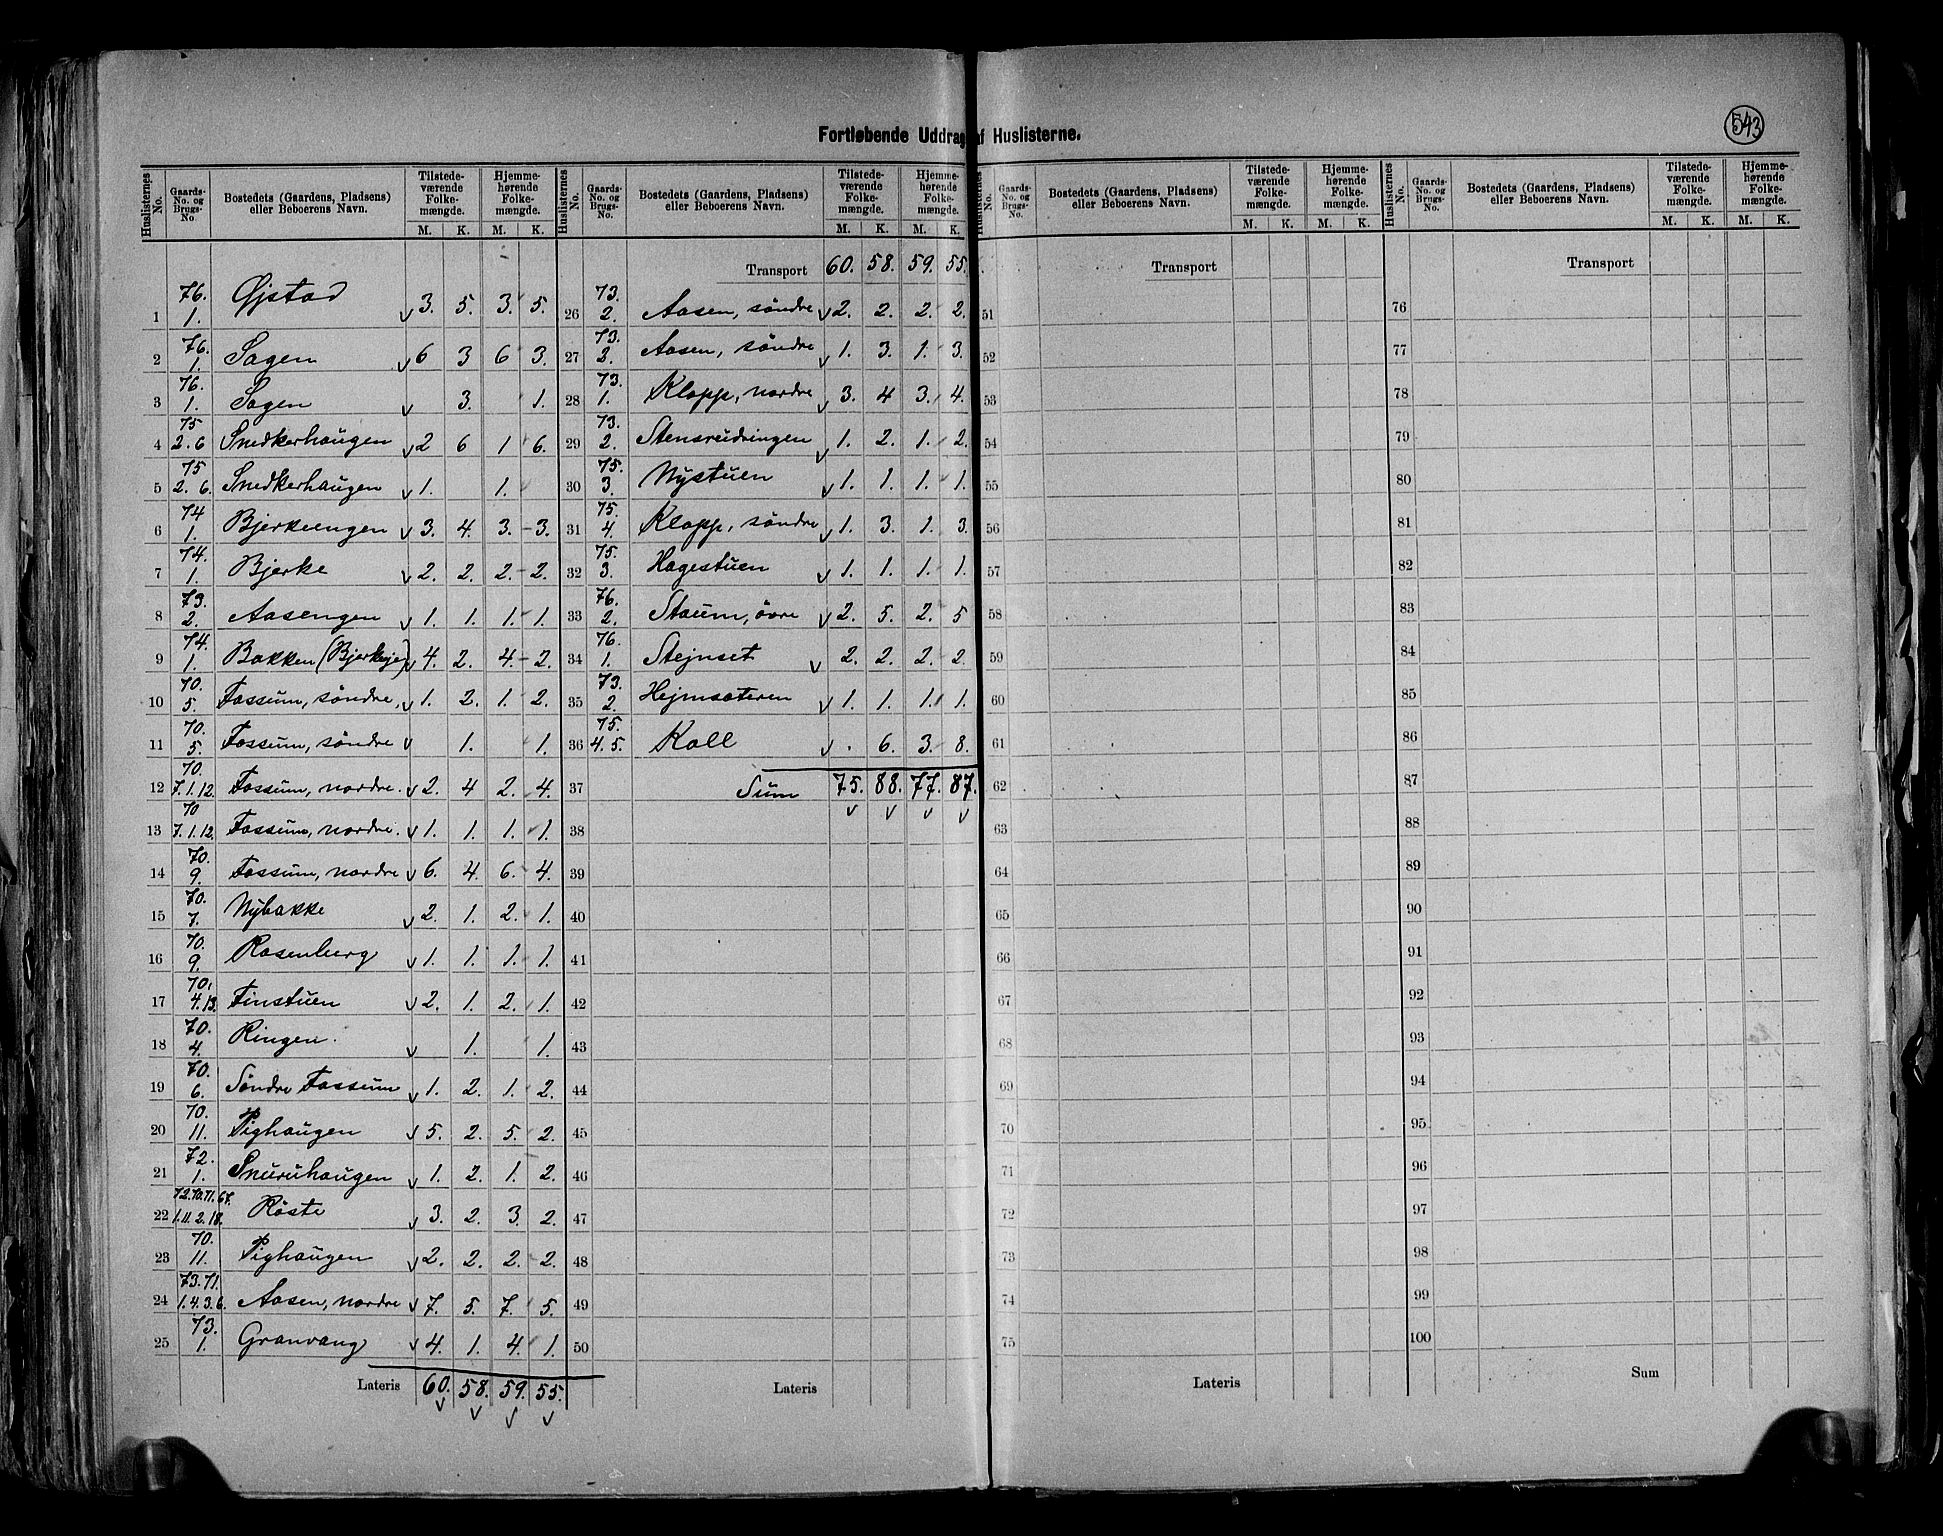 543
Fortløbende Uddrag af Huslisterne.
Huslisternes No. | Gaards-No. og Brugs-No | Bostedets (Gaardens, Pladsens) eller Beboerens Navn. | Tilstedeværende Folkemængde. M. K. | Hjemmehørende Folkemængde. M. K.
1 | 76. 1. | Øjstad | 3. | 5. | 3. | 5.
2 | 76. 1. | Sagen | 6 | 3 | 6 | 3.
3 | 76. 1. | Sagen | | 3. | | 1.
4 | 75 2. 6 | Snedkerhaugen | 2 | 6 | 1 | 6.
5 | 75 2. 6. | Snedkerhaugen | 1. | | 1. |
6 | 74 1. | Bjerkeengen | 3. | 4. | 3. | 3.
7 | 74. 1. | Bjerke | 2. | 2. | 2. | 2.
8 | 73. 2. | Aasengen | 1. | 1. | 1. | 1.
9 | 74. 1. | Bakken (Bjerkeje) | 4. | 2. | 4. | 2.
10 | 70. 5. | Fossum, søndre, | 1. | 2. | 1. | 2.
11 | 70. 5. | Fossum, søndre | | 1. | | 1.
12 | 70. 7. 1. 12. | Fossum, nordre. | 2. | 4 | 2. | 4.
13 | 70 7. 1. 12. | Fossum, nordre. | 1. | 1. | 1. | 1.
14 | 70. 9. | Fossum, nordre | 6. | 4. | 6. | 4.
15 | 70. 7. | Nybakke | 2. | 1. | 2. | 1.
16 | 70. 9. | Rosenberg | 1. | 1. | 1. | 1.
17 | 70. 4. 13. | Finstuen | 2. | 1. | 2. | 1.
18 | 70. 4. | Ringen. | | 1. | | 1.
19 | 70. 6. | Søndre Fossum | 1. | 2. | 1. | 2.
20 | 70. 11. | Pighaugen | 5. | 2. | 5. | 2.
21 | 72. 1. | Snuruhaugen | 1. | 2. | 1. | 2.
22 | 72. 70. 71. 67. 1. 11. 2. 18. | Røste | 3. | 2. | 3. | 2.
23 | 70. 11. | Pighaugen | 2. | 2. | 2. | 2.
24 | 73. 71. 1. 4. 3. 6. | Aasen, nordre | 7. | 5. | 7. | 5.
25 | 73. 1. | Granvang | 4. | 1. | 4. | 1.
Lateris | 60. | 58. | 59. | 55.
Huslisternes No. | Gaards-No. og Brugs-No. | Bostedets (Gaardens, Pladsens) eller Beboerens Navn. | Tilstedeværende Folkemængde. M. K. | Hjemmehørende Folkemængde. M. K.
Transport | 60. | 58. | 59. | 55.
26 | 73. 2. | Aasen, søndre | 2. | 2. | 2. | 2.
27 | 73. 2. | Aasen, søndre | 1. | 3. | 1. | 3.
28 | 73. 1. | Klopp, nordre | 3. | 4 | 3. | 4.
29 | 73. 2. | Stensrudringen | 1. | 2. | 1. | 2.
30 | 75. 3. | Nystuen | 1. | 1. | 1. | 1.
31 | 75. 4. | Klopp, søndre | 1. | 3. | 1. | 3.
32 | 75. 3. | Hagestuen | 1. | 1. | 1. | 1.
33 | 76. 2. | Staum, övre | 2. | 5. | 2. | 5
34 | 76. 1. | Stejnset | 2. | 2. | 2. | 2.
35 | 73. 2. | Hejmsæteren | 1. | 1. | 1. | 1.
36 | 75. 4. 5. | Koll | . | 6. | 3. | 8.
37 | Sum | 75. | 88. | 77. | 87.
38
39
40
41
42
43
44
45
46
47
48
49
50
Lateris
Huslisternes No. | Gaards-No. og Brugs-No. | Bostedets (Gaardens, Pladsens) eller Beboerens Navn. | Tilstedeværende Folkemængde. M. K. | Hjemmehørende Folkemængde. M. K.
Transport
51
52
53
54
55
56
57
58
59
60
61
62
63
64
65
66
67
68
69
70
71
72
73
74
75
Lateris
Huslisternes No. | Gaards-No. og Brugs-No. | Bostedets (Gaardens, Pladsens) eller Beboerens Navn. | Tilstedeværende Folkemængde. M. K. | Hjemmehørende Folkemængde. M. K.
Transport
76
77
78
79
80
81
82
83
84
85
86
87
88
89
90
91
92
93
94
95
96
97
98
99
100
Sum